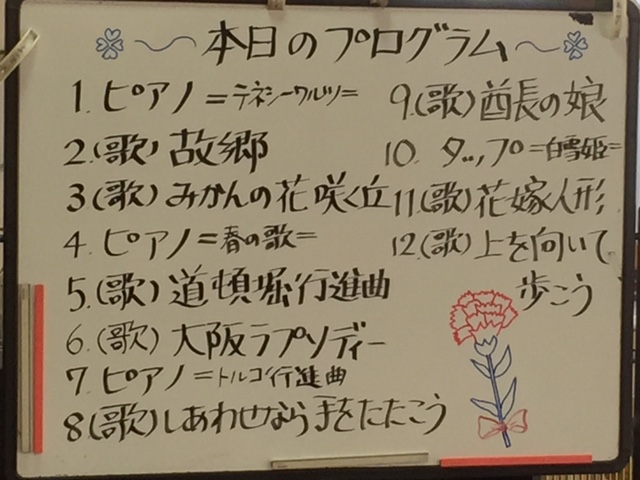 本日のプログラム
1. ピアノ=テネシーワルツ=
2.(歌) 故郷
3(歌) みかんの花咲く丘
4. ピアノ=春の歌=
5.(歌) 道頓堀行進曲
6.(歌) 大阪ラプソディー
7. ピアノ=トルコ行進曲
8(歌)しあわせなら手をたたこう
9.(歌) 酋長の娘
10. タップ=白雪姫=
11(歌)花嫁人形
12.(歌)上を向いて
歩こう